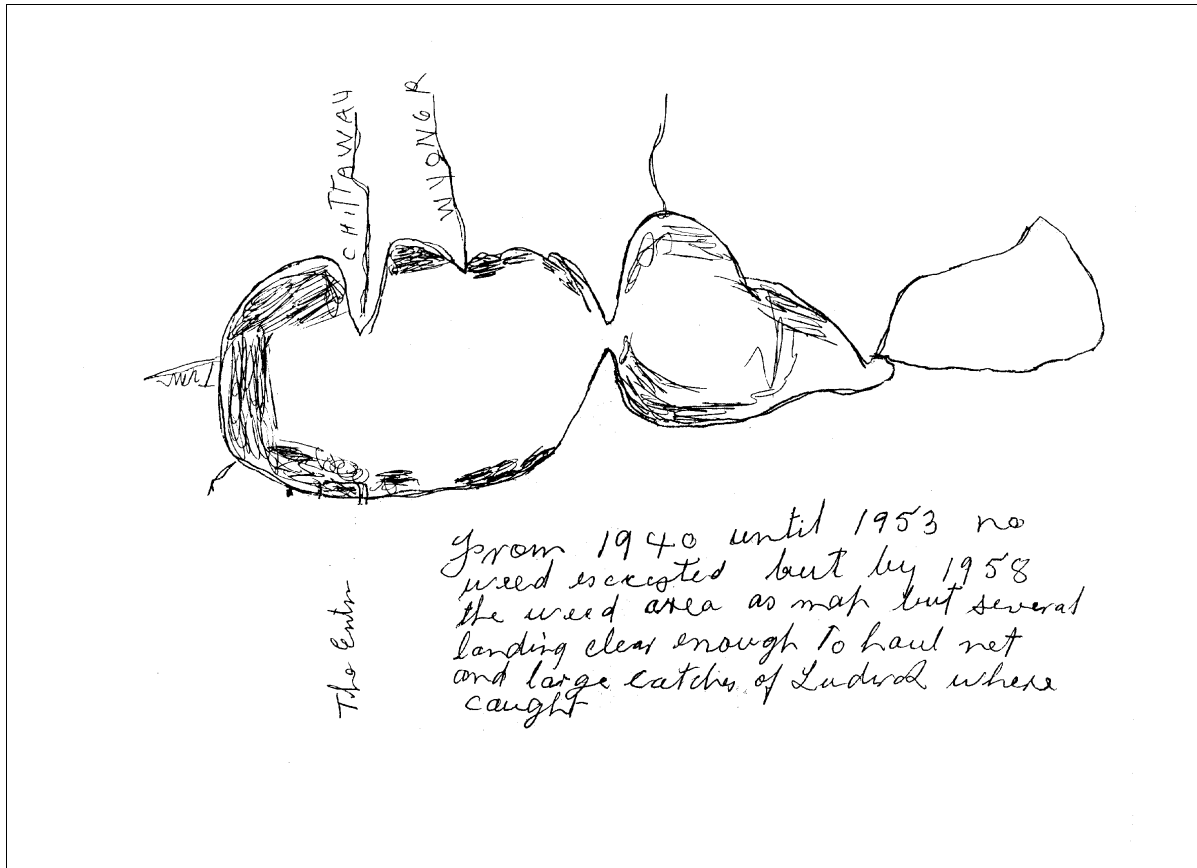 CHITTAWAY
WYONG R
The Entr
From 1940 until 1953 no
weed escxisted but by 1958
the weed area as map but several
landing clear enough To haul net
and large catches of Ludrick where
caught